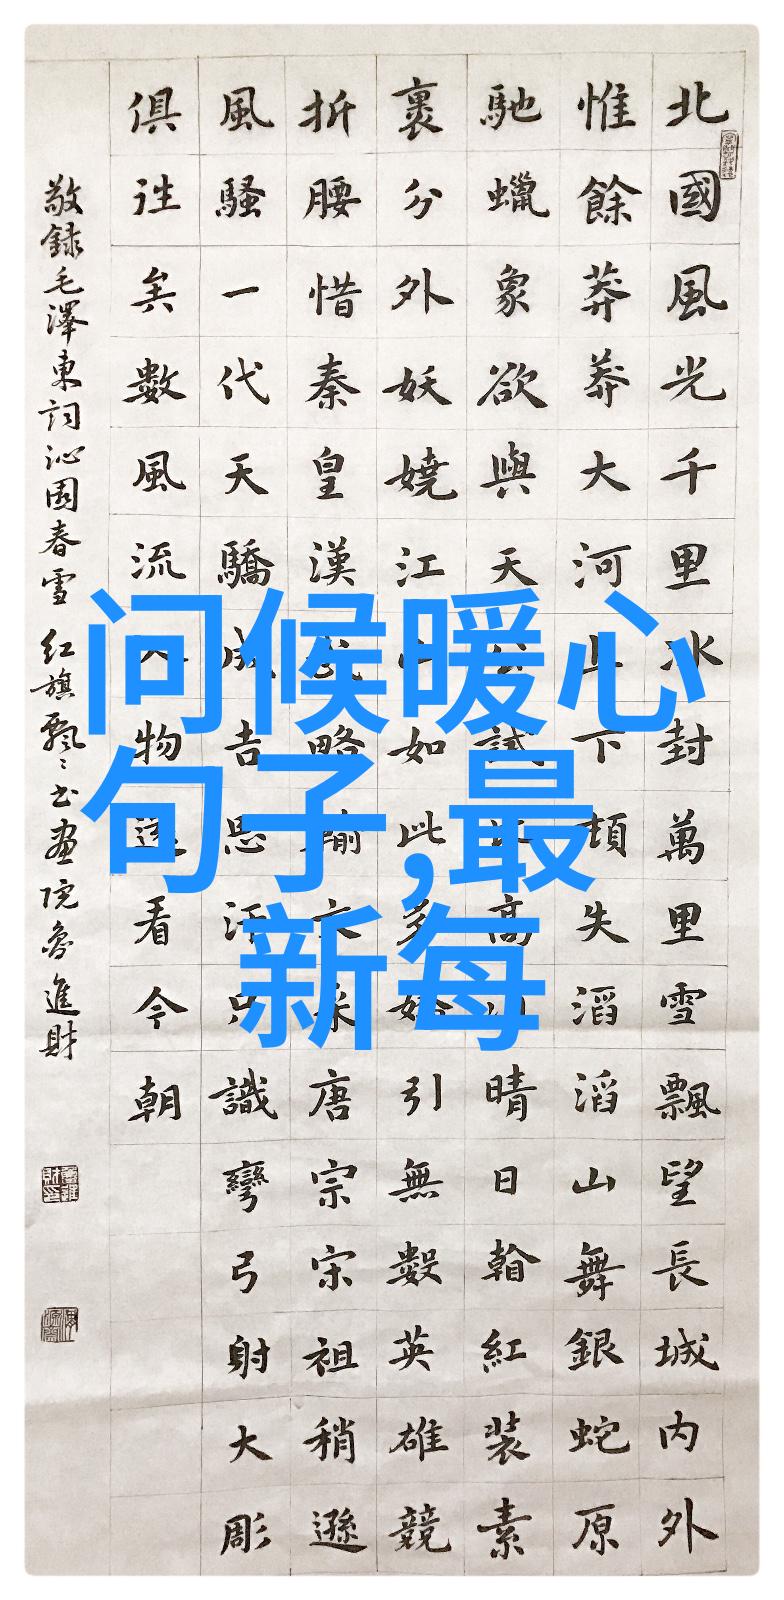 北國風光千里冰封萬里雪飄望長城内外
惟餘莽莽大河上下頓失滔滔山舞銀蛇原
馳蠟象欲與天公試比高須晴日看紅裝素
裹分外妖嬈江山如此多嬌引無數英雄競
折腰惜秦皇漢武略輸文采唐宗宋祖稍遜
風騷一代天驕成吉思汗只識彎弓射大彫
俱往矣數風流人物還看今朝
敬録毛澤東詞沁園春雪 紅旗飄〻书画院魯進財
问候暖心
句子,最
新每